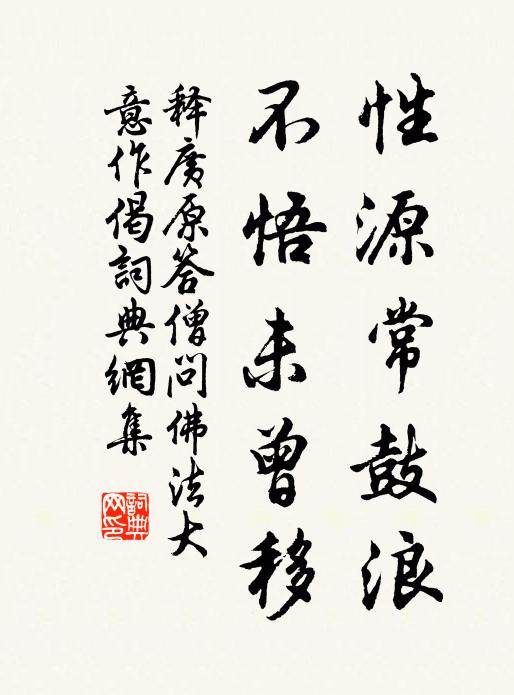 性源常鼓浪
不悟未曾移
释廣原答僧問佛法大
意作偈詞典網集
詞典
网印